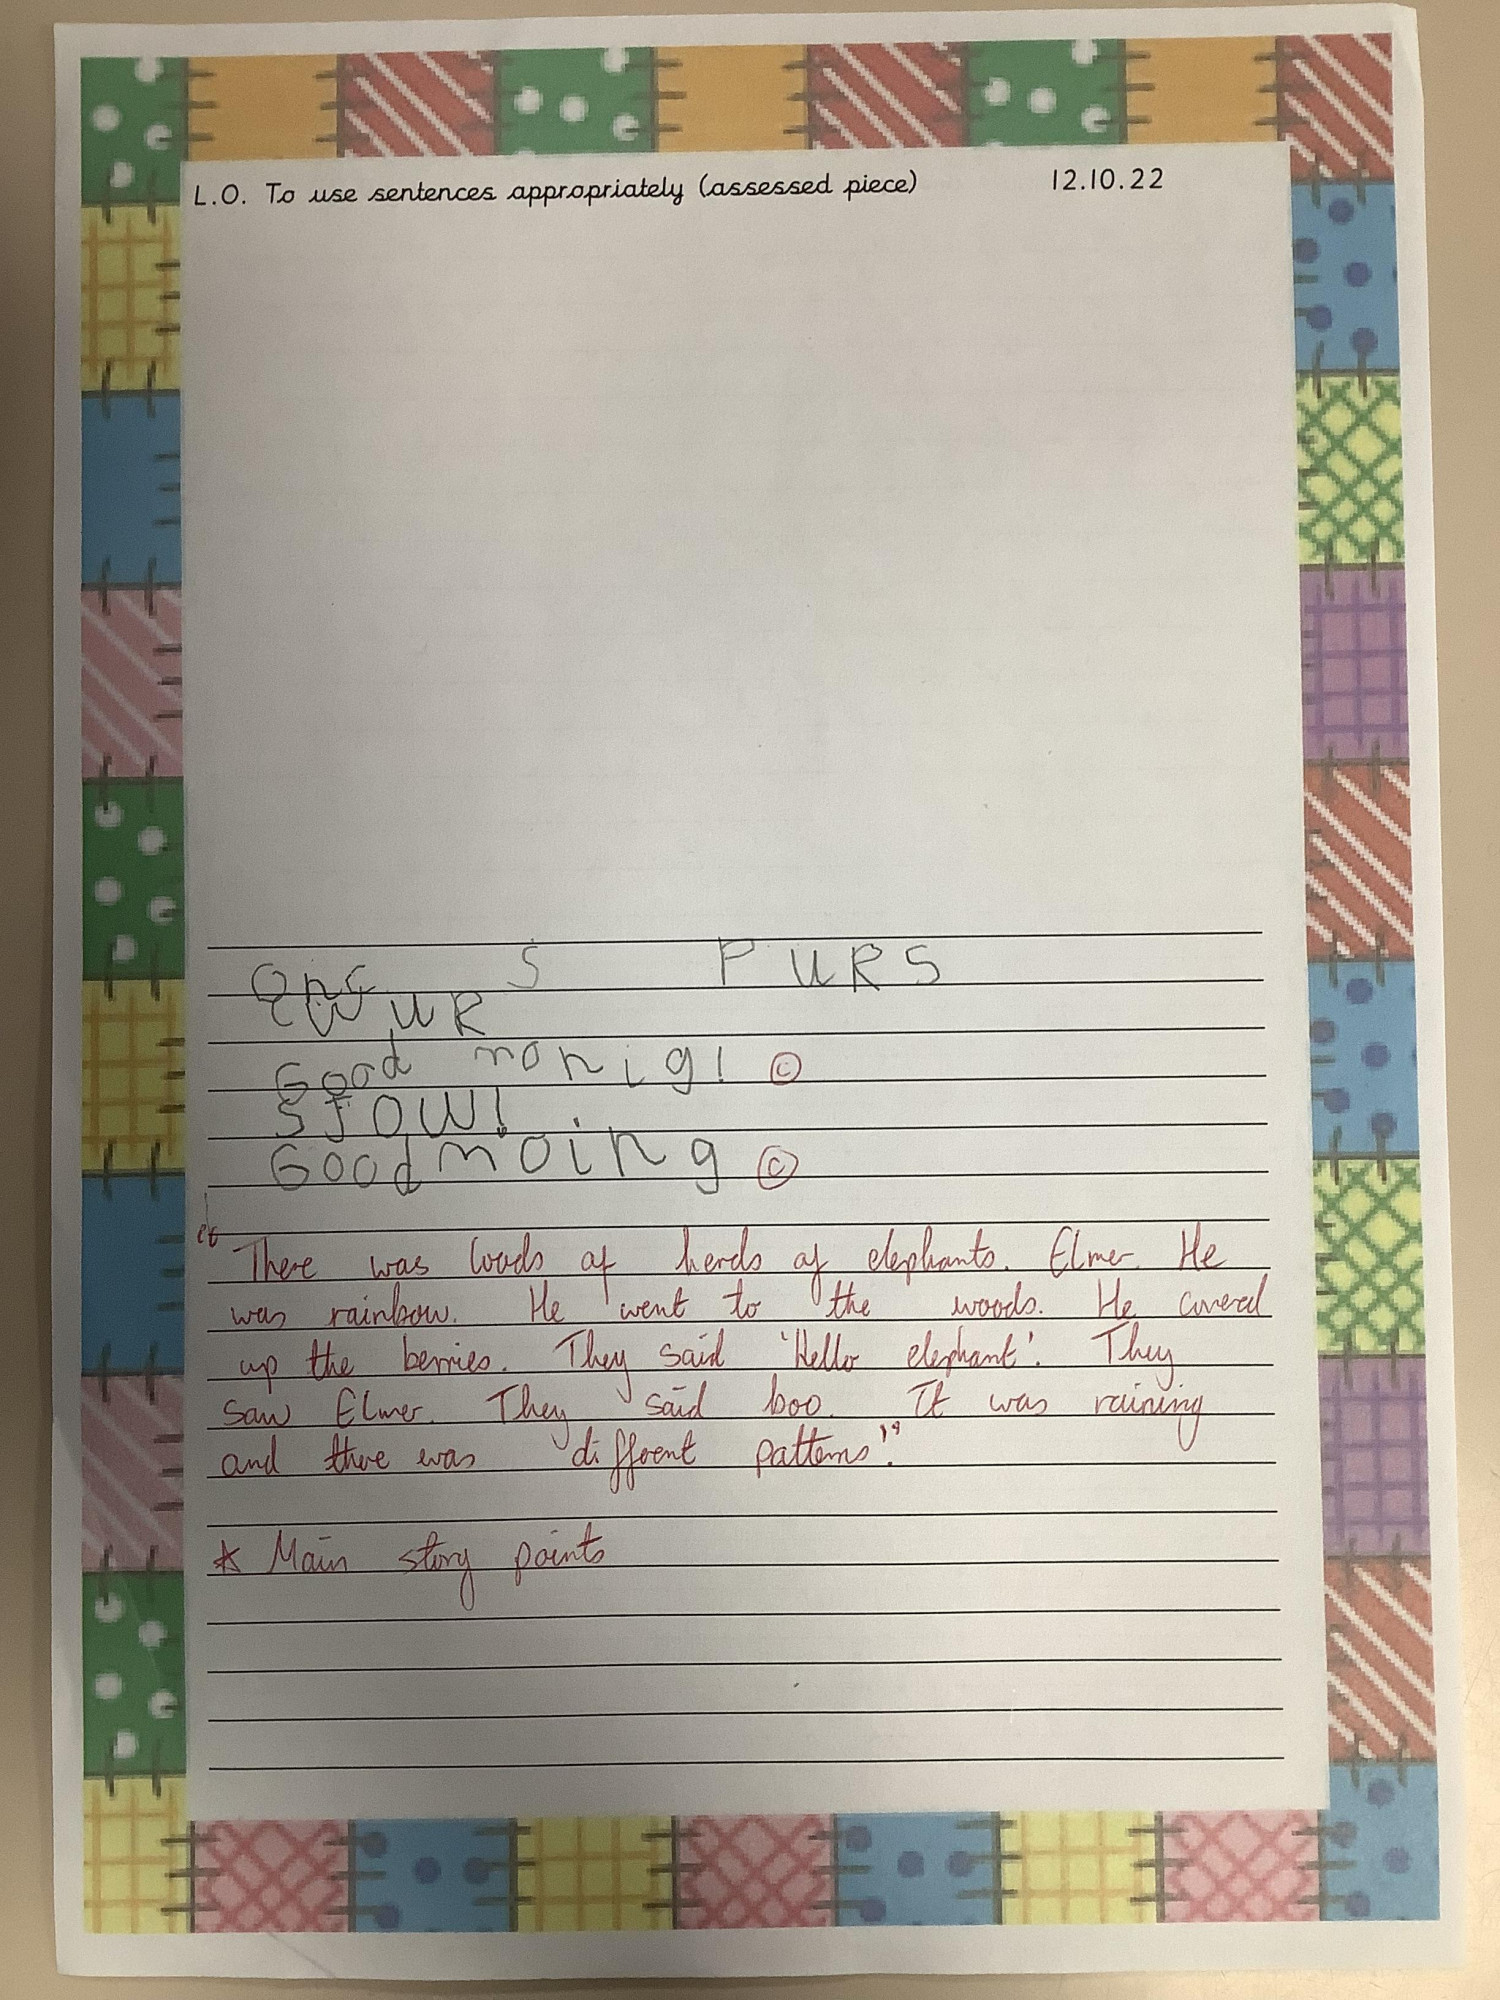 L.O. To use sentences appropriately (assessed piece) 12.10.22
One S PURS
WUR
Good monig! ©
SJOW!
Good moing ©
"There was loads of herds of elephants. Elmer. He
was rainbow. He went to the woods. He covered
up the berries. They said 'Hello elephant'. They
saw Elmer. They said boo. It was raining
and there was different patterns."
* Main story points